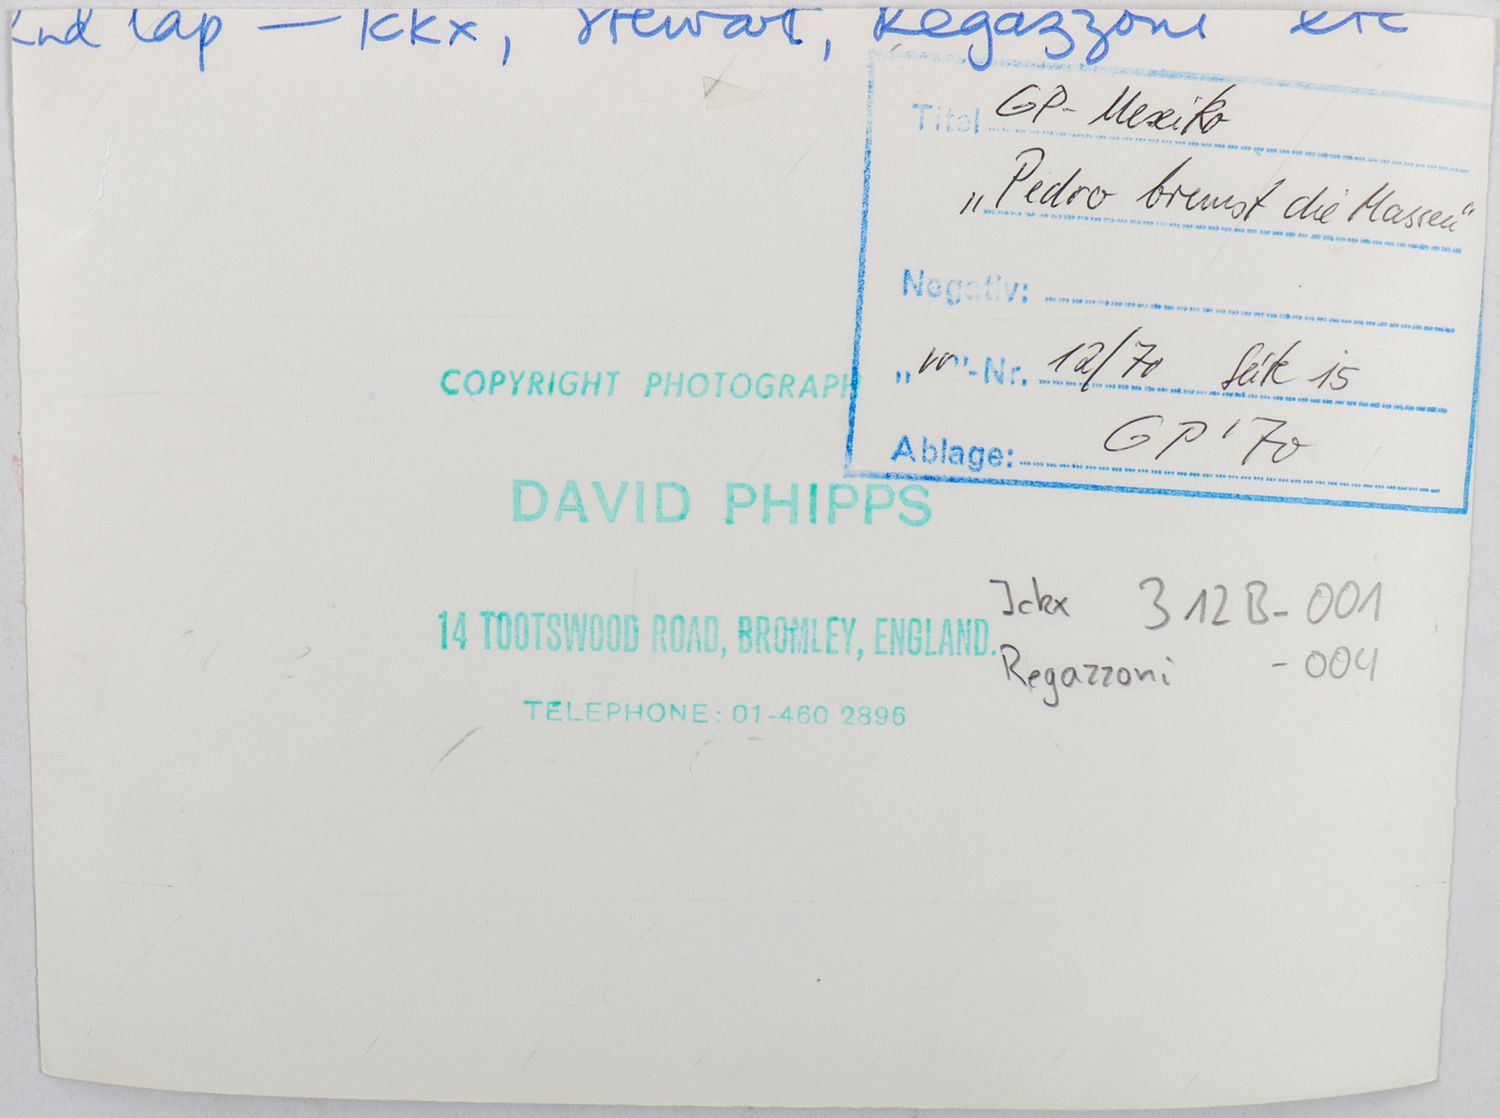 2nd lap — Ickx, Stewart, Regazzoni etc
Titel GP-Mexiko
„Pedro bremst die Massen“
Negativ:
„m“-Nr. 12/70 Seite 15
Ablage: GP '70
COPYRIGHT PHOTOGRAPH
DAVID PHIPPS
14 TOOTSWOOD ROAD, BROMLEY, ENGLAND.
TELEPHONE: 01-460 2896
Ickx 312B-001
Regazzoni -004